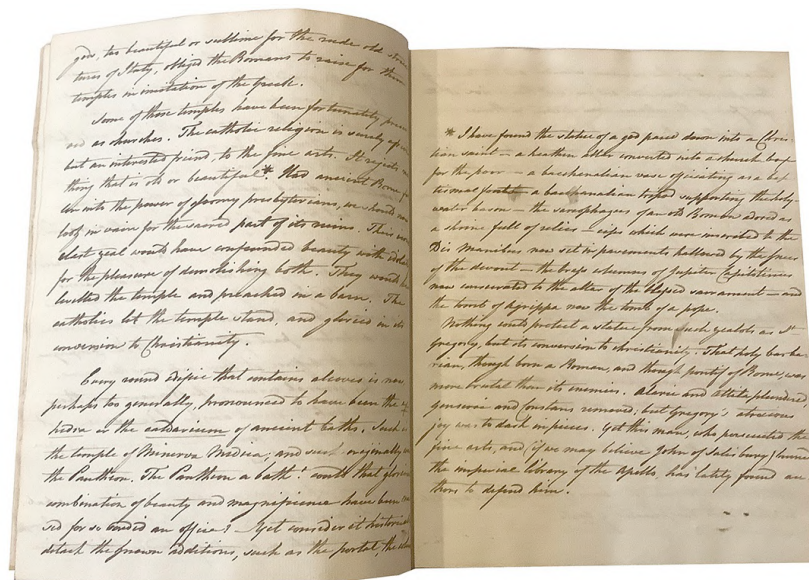 gods, too beautiful or sublime for the rude old struc
tures of Italy, obliged the Romans to raise for them
temples in imitation of the Greek.
Some of those temples have been fortunately preserv
ed as churches. The catholic religion is surely
but an interested friend, to the fine arts. It rejects no
thing that is old or beautiful*. Had ancient Rome
with the power of gloomy presbyterians, we should now
look in vain for the sacred part of its ruins. Their
zeal would have confounded beauty with
for the pleasure of demolishing both. They would have
levelled the temple and preached in a barn. The
catholics let the temple stand, and gloried in its
conversion to Christianity.
Every round edifice that contains alcoves is now
perhaps too generally, pronounced to have been the
or the caldarium of ancient baths. Such is
the temple of Minerva Medica, and such originally
the Pantheon. The Pantheon a bath! could that glorious
combination of beauty and magnificence have been
for so an office? Yet consider it
detach the known additions, such as the portal, the
* I have found the statue of a god pared down into a Chris
tian saint — a heathen altar converted into a church box
for the poor — a bacchanalian vase officiating as a bap
tismal font — a bacchanalian tripod supporting the holy
water bason — the sarcophagus of an old Roman adored as
a shrine full of relics — cips which were inscribed to the
Dis Manibus now set in pavements hallowed by the knees
of the devout — the brass columns of Jupiter Capitolinus
now consecrated to the altar of the blessed sacrament — and
the tomb of Agrippa now the tomb of a pope.
Nothing could protect a statue from such zealots as St
Gregory, but its conversion to christianity. That holy barba
rian, though born a Roman, and though pontiff of Rome, was
more brutal than its enemies. Alaric and Attila plundered
Genseric and Constans removed; but Gregory's atrocious
joy was to dash in pieces. Yet this man, who persecuted the
fine arts, and (if we may believe John of Salisbury) burned
the imperial library of the Apollo, has lately found au
thors to defend him.